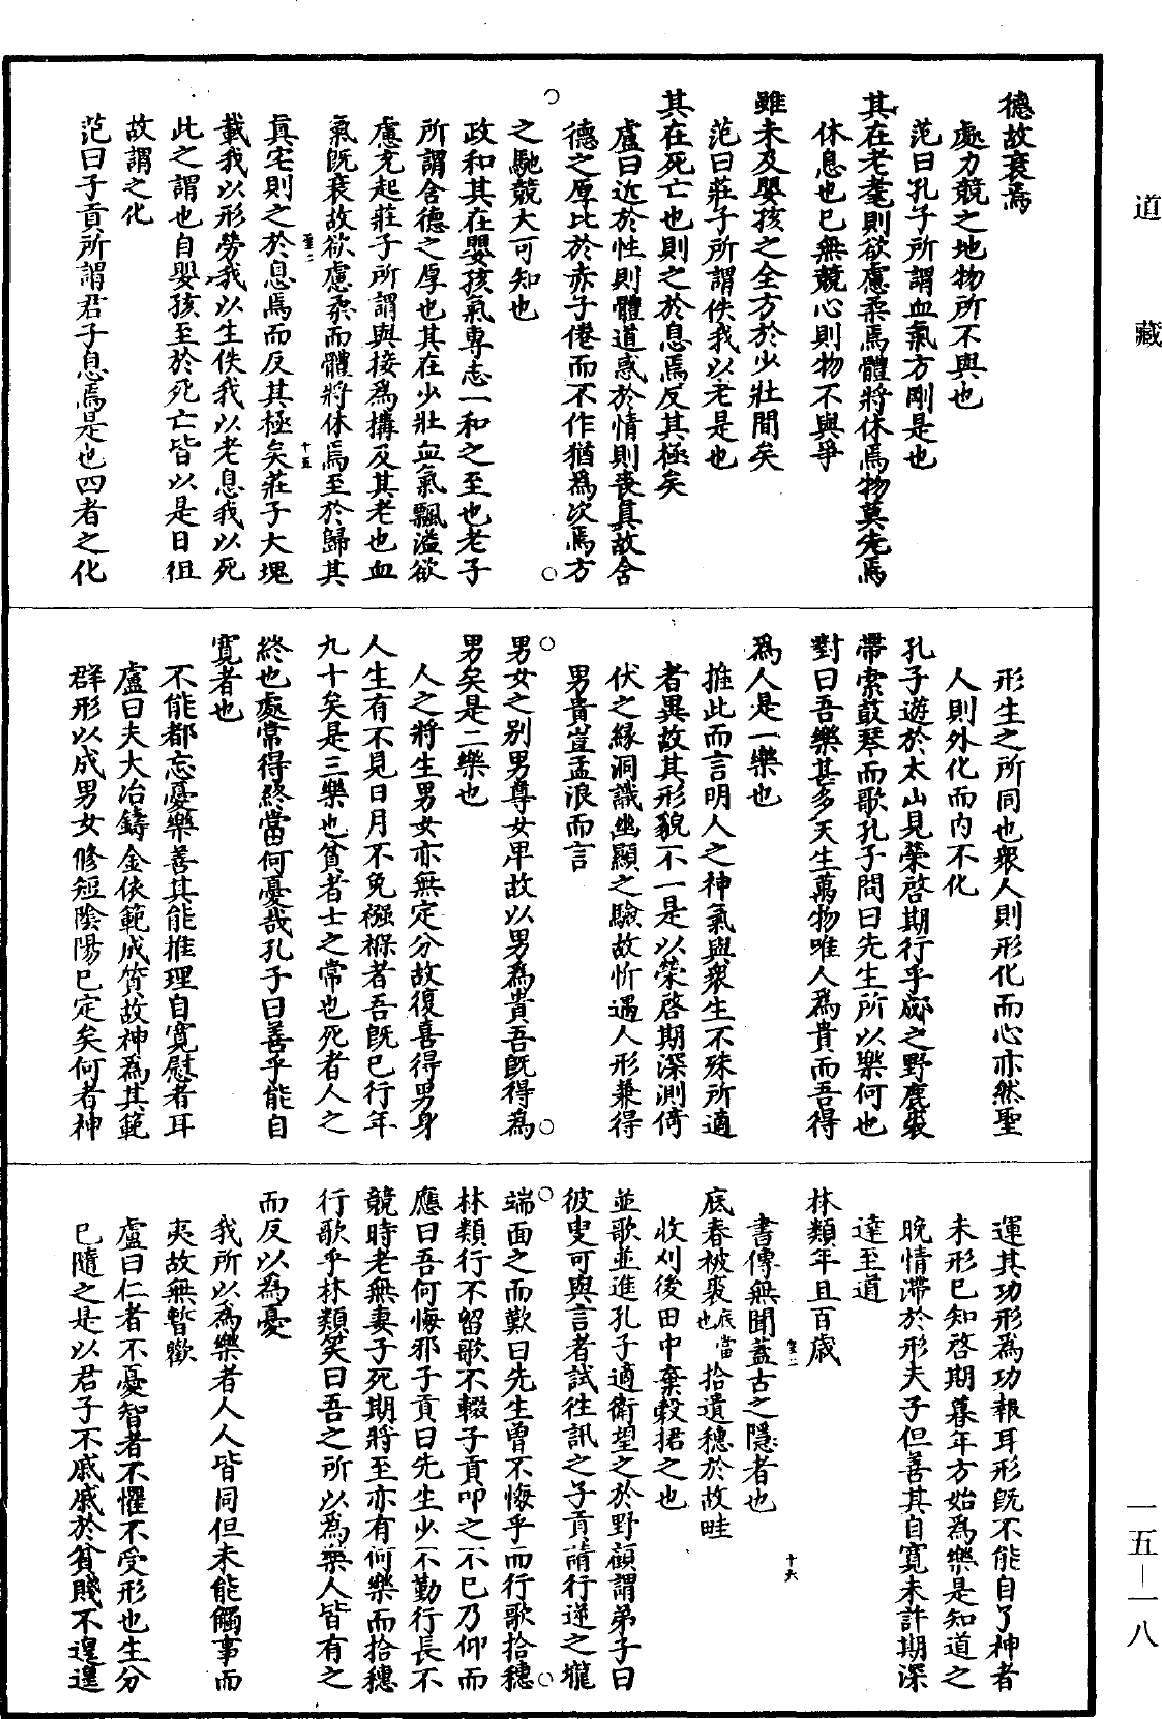 道藏
德故衰焉
處力競之地物所不與也
范曰孔子所謂血氣方剛是也
其在老耄則欲慮柔焉體將休焉物莫先焉
休息也已無競心則物不與爭
雖未及嬰孩之全方於少壯間矣
范曰莊子所謂佚我以老是也
其在死亡也則之於息焉反其極矣
盧曰近於性則體道惑於情則喪真故含
德之厚比於赤子倦而不作猶為次焉方
之馳競大可知也
政和其在嬰孩氣專志一和之至也老子
所謂含德之厚也其在少壯血氣飄溢欲
慮充起莊子所謂與接為搆及其老也血
氣既衰故欲慮柔而體將休焉至於歸其
至二
十五
真宅則之於息焉而反其極矣莊子大塊
載我以形勞我以生佚我以老息我以死
此之謂也自嬰孩至於死亡皆以是日徂
故謂之化
范曰子貢所謂君子息焉是也四者之化
形生之所同也衆人則形化而心亦然聖
人則外化而內不化
孔子遊於太山見榮啓期行乎郕之野鹿裘
帶索鼓琴而歌孔子問曰先生所以樂何也
對曰吾樂甚多天生萬物唯人為貴而吾得
為人是一樂也
推此而言明人之神氣與衆生不殊所適
者異故其形貌不一是以榮啓期深測倚
伏之緣洞識幽顯之驗故忻遇人形兼得
男貴豈孟浪而言
男女之別男尊女卑故以男為貴吾既得為
男矣是二樂也
人之將生男女亦無定分故復喜得男身
人生有不見日月不免襁褓者吾既已行年
九十矣是三樂也貧者士之常也死者人之
終也處常得終當何憂哉孔子曰善乎能自
寬者也
不能都忘憂樂善其能推理自寬慰者耳
盧曰夫大冶鑄金依範成質故神為其範
群形以成男女脩短陰陽已定矣何者神
運其功形為功報耳形既不能自了神者
未形已知啓期暮年方始為樂是知道之
晚情滯於形夫子但善其自寬未許期深
達至道
林類年且百歲
至二
十六
書傳無聞蓋古之隱者也
底春被裘底當也拾遺穗於故畦
收刈後田中棄穀捃之也
並歌並進孔子適衛望之於野顧謂弟子曰
彼叟可與言者試往訊之子貢請行逆之壠
端面之而歎曰先生曾不悔乎而行歌拾穗
林類行不留歌不輟子貢叩之不已乃仰而
應曰吾何悔邪子貢曰先生少不勤行長不
競時老無妻子死期將至亦有何樂而拾穗
行歌乎林類笑曰吾之所以為樂人皆有之
而反以為憂
我所以為樂者人人皆同但未能觸事而
夷故無暫歡
盧曰仁者不憂智者不懼不受形也生分
已隨之是以君子不戚戚於貧賤不遑遑
一五—一八